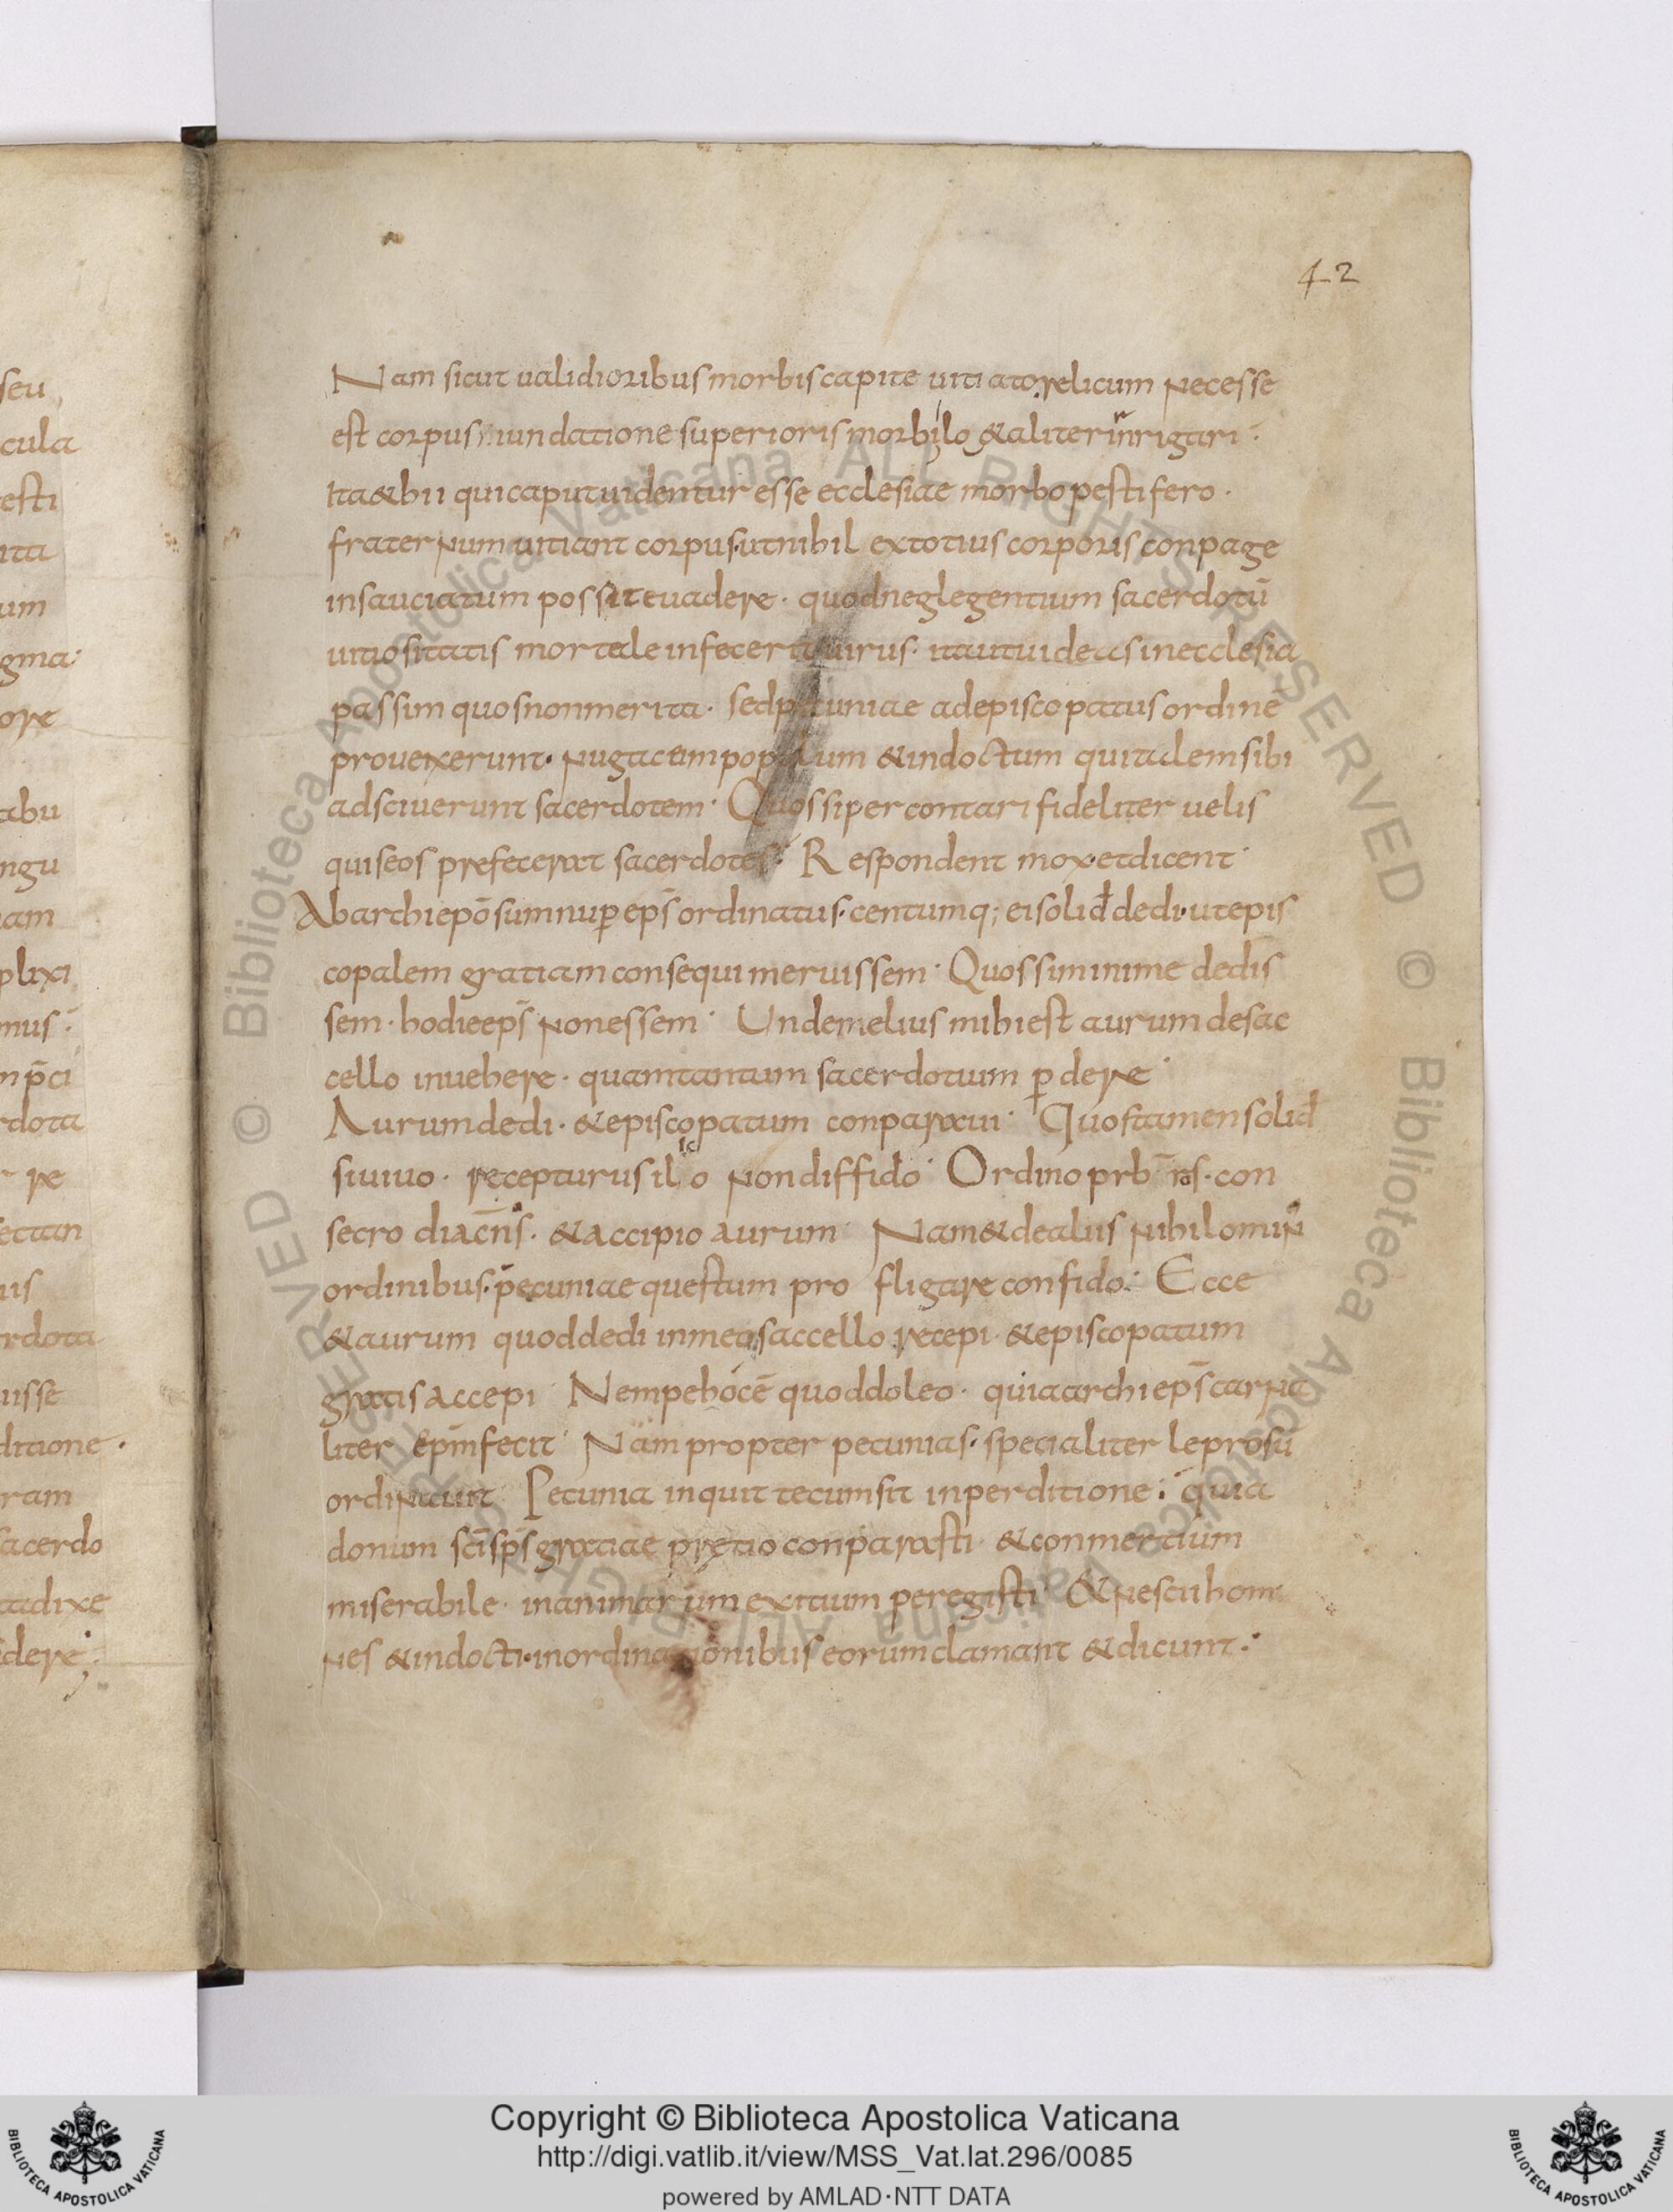 42
seu
cula
esti
ita
um
gma
ore
abu
ngu
am
plixi
mus
m p̄ci
rdota
re
ectan
uis
rdota
uisse
ditione ·
ram
acerdo
tadixe
dere
Nam sicut ualidioribus morbis capite uitiato relicum necesse
est corpus inundatione superioris morbi lo & aliter inrigari ·
Ita & hii qui caput uidentur esse ecclesiae morbo pestifero ·
fraternum uitiant corpus · ut nihil ex totius corporis conpage
insauciatum possit euadere · quod neglegentium sacerdotū
uitiositatis mortale infecerit uirus · ita ut uideas in ecclesia
passim quos non merita · sed pecuniae ad episcopatus ordinē
prouexerunt · nugacem populum & indoctum qui talem sibi
adsciuerunt sacerdotem · Quos si percontari fideliter uelis
quis eos prefecerat sacerdotes · Respondent mox et dicent ·
Ab archiepō sum nuper eps̄ ordinatus · centumq; ei solid̄ dedi · ut epis
copalem gratiam consequi meruissem · Quos si minime dedis
sem · hodie eps̄ non essem · Unde melius mihi est aurum de sac
cello inuehere · quam tantum sacerdotium ꝑdere ·
Aurum dedi · & episcopatum conparaui · Quos tamen solid̄
si uiuo · recepturus illico non diffido · Ordino prb̄ ros · con
secro diacn̄s · & accipio aurum · Nam & de aliis nihilomin
ordinibus · pecuniae questum profligare confido · Ecce
& aurum quod dedi in meo saccello recepi · & episcopatum
gratis accepi · Nempe hoc ē quod doleo · quia archieps̄ carna
liter ep̄m fecit · Nam propter pecunias · specialiter leprosū
ordinauit · Pecunia inquit tecum sit in perditione · quia
donum sc̄i sp̄s gratiae pretio conparasti · & conmercium
miserabile · in animarum exitium peregisti · & nescii homi
nes & indocti · in ordinationibus eorum clamant & dicunt ·
© Biblioteca Apostolica Vaticana ALL RIGHTS RESERVED © Biblioteca Apostolica Vaticana ALL RIGHTS RESERVED
BIBLIOTECA APOSTOLICA VATICANA
Copyright © Biblioteca Apostolica Vaticana
http://digi.vatlib.it/view/MSS_Vat.lat.296/0085
powered by AMLAD·NTT DATA
BIBLIOTECA APOSTOLICA VATICANA